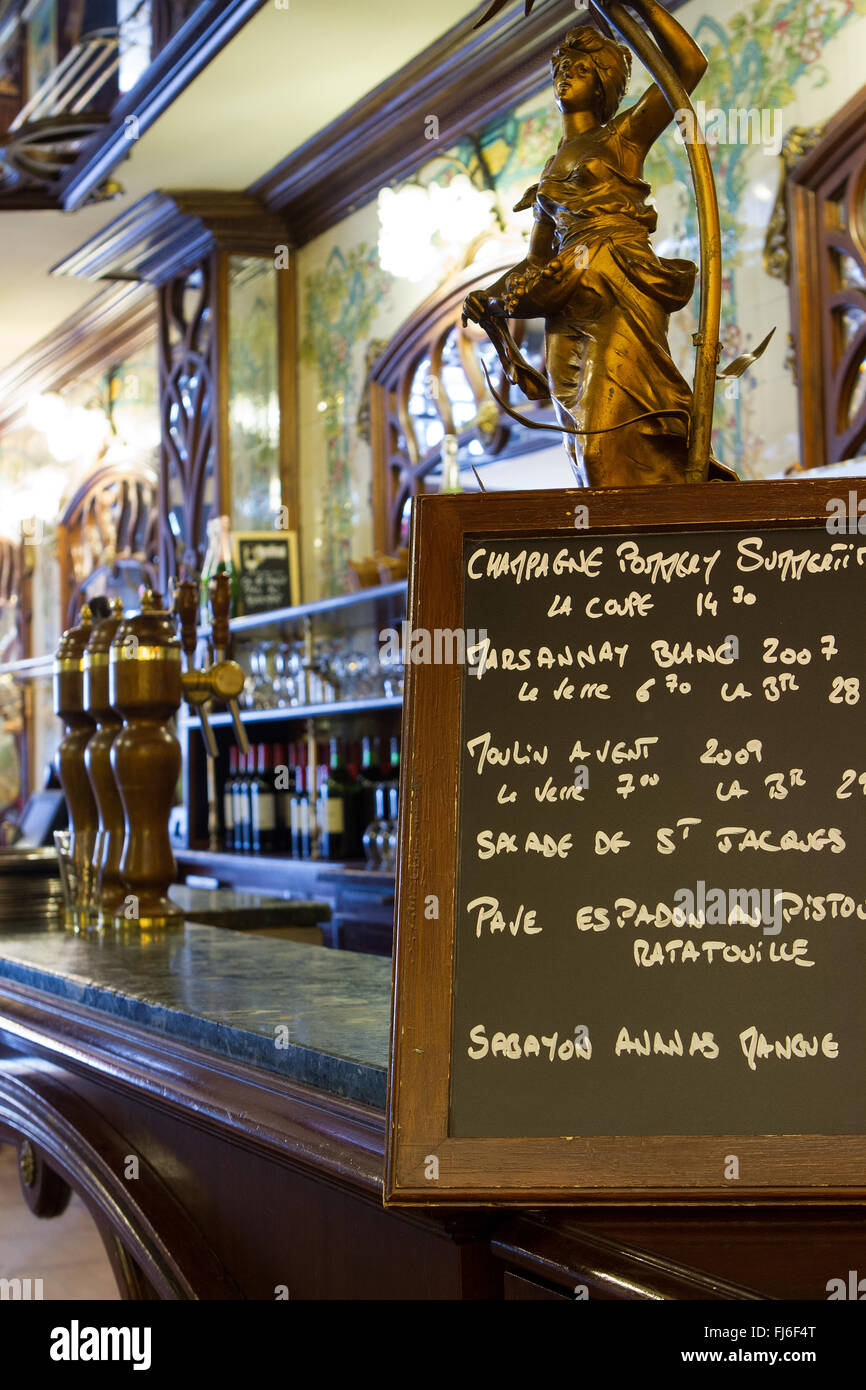 CHAMPAGNE POMMERY SUMMERTI
LA COUPE 14 30
MARSANNAY BLANC 2007
Le Verre 6 70 LA BTL 28
MOULIN A VENT 2009
Le Verre 7 00 LA BTL 2
SALADE DE ST JACQUES
PAVE ESPADON AU PISTOU
RATATOUILLE
SABAYON ANANAS MANGUE
alamy
Image ID: FJ6F4T
www.alamy.com